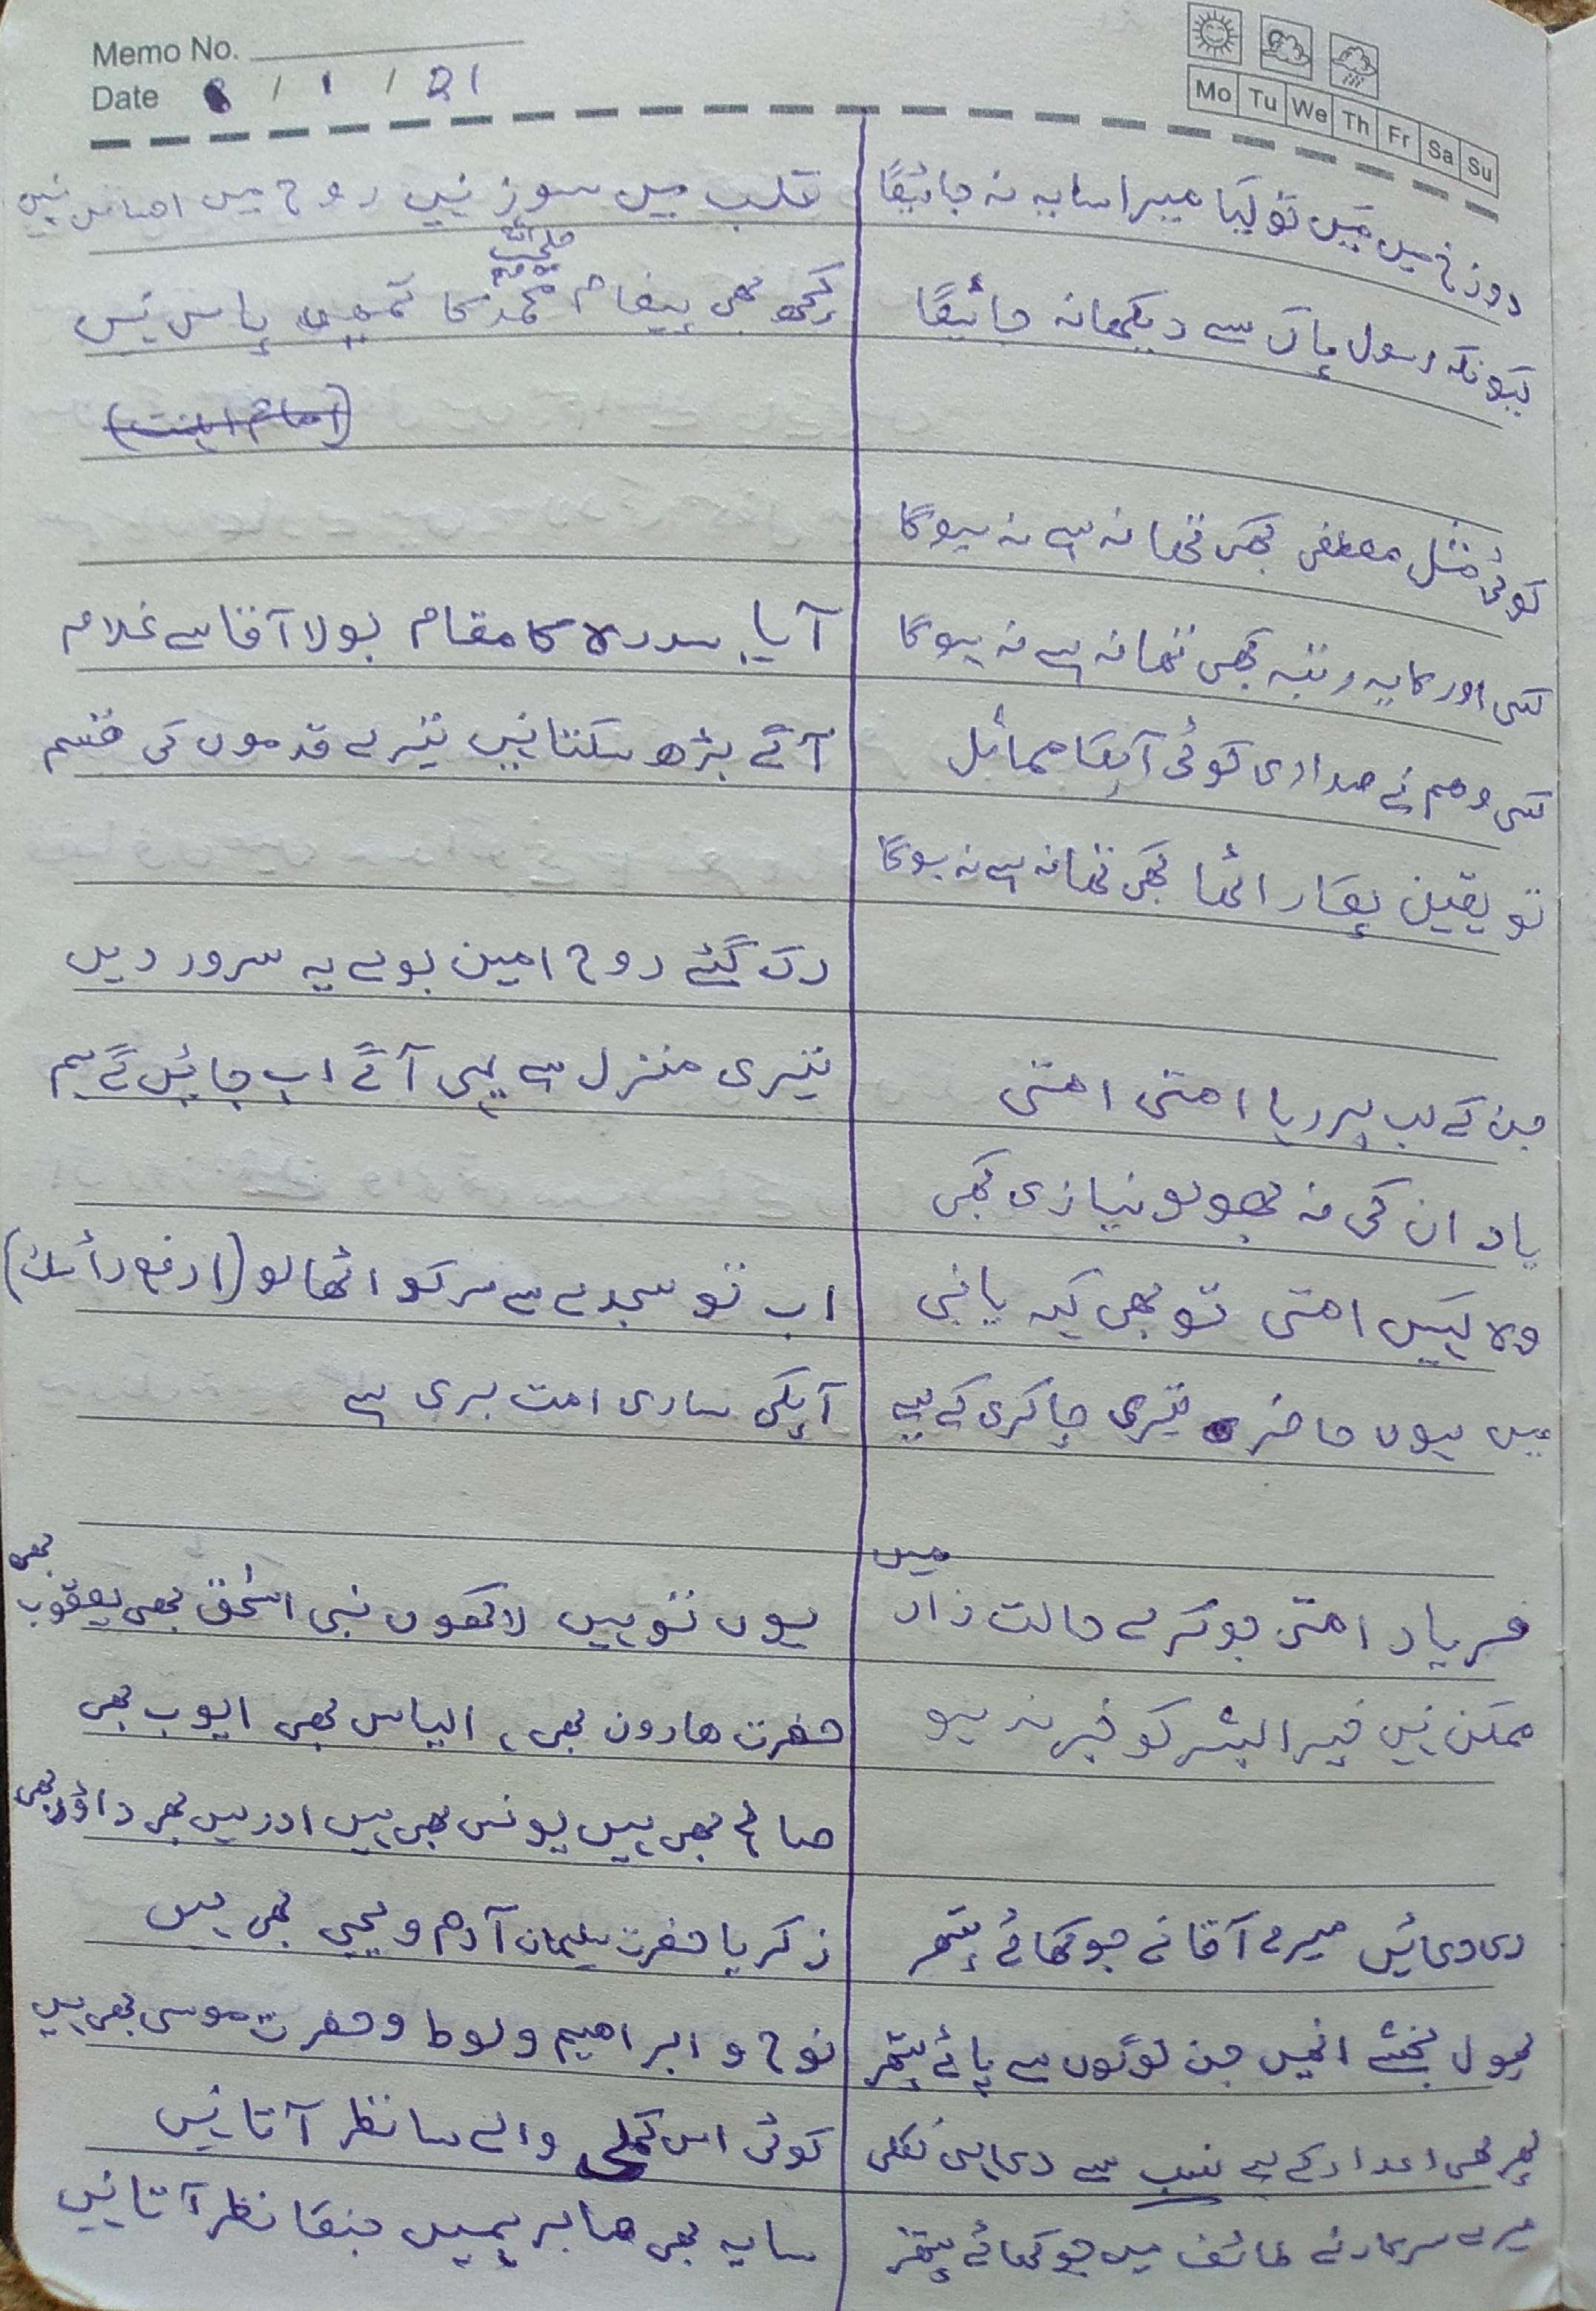 Memo No.
Date 8 / 1 / 21
Mo Tu We Th Fr Sa Su
دوزخ میں مَیں تو کیا میرا سایہ نہ جائیگا
کیونکہ رسول پاک سے دیکھا نہ جائیگا
کوئی مثل مصطفی کبھی تھا نہ ہے نہ ہوگا
کسی اور کا یہ رتبہ کبھی تھا نہ ہے نہ ہوگا
کسی وھم نے صدا دی کوئی آپکا مماثل
تو یقین پکار اٹھا کبھی تھا نہ ہے نہ ہوگا
جن کے لب پر رہا امتی امتی
یاد ان کی نہ بھولو نیازی کبھی
وہ کہیں امتی تو بھی کہہ یا نبی
میں ہوں حاضر تیری چاکری کے لیے
فریاد امتی جو کرے حالت زار میں
ممکن نہیں خیر البشر کو خبر نہ ہو
دی دعائیں میرے آقا نے جو کھائے پتھر
پھول بخشے انہیں جن لوگوں سے پائے پتھر
پھر بھی اعداد کے لیے لب سے دعا ہی نکلی
میرے سرکار نے طائف میں جو کھائے پتھر
قلب میں سوز نہیں روح میں احساس نہیں
کچھ بھی پیغام محمد ﷺ کا تمہیں پاس نہیں
(امام اہلسنت)
آیا سدرہ کا مقام بولا آقا سے غلام
آگے بڑھ سکتا نہیں تیرے قدموں کی قسم
رک گئے روح امین بولے یہ سرور دیں
تیری منزل ہے یہی آگے اب جائیں گے ہم
اب تو سجدے سے سر کو اٹھا لو (ارفع رأسك)
آپکی ساری امت بری ہے
یوں تو ہیں لاکھوں نبی اسحٰق بھی یعقوب بھی
حضرت ھارون بھی، الیاس بھی ایوب بھی
صالح بھی ہیں یونس بھی ہیں ادریس بھی داؤد بھی
زکریا حضرت سلیمان آدم و یحیی بھی ہیں
نوح و ابراھیم و لوط و حضرت موسی بھی ہیں
کوئی اس کملی والے سا نظر آتا نہیں
سایہ بھی صابر ہمیں جنکا نظر آتا نہیں